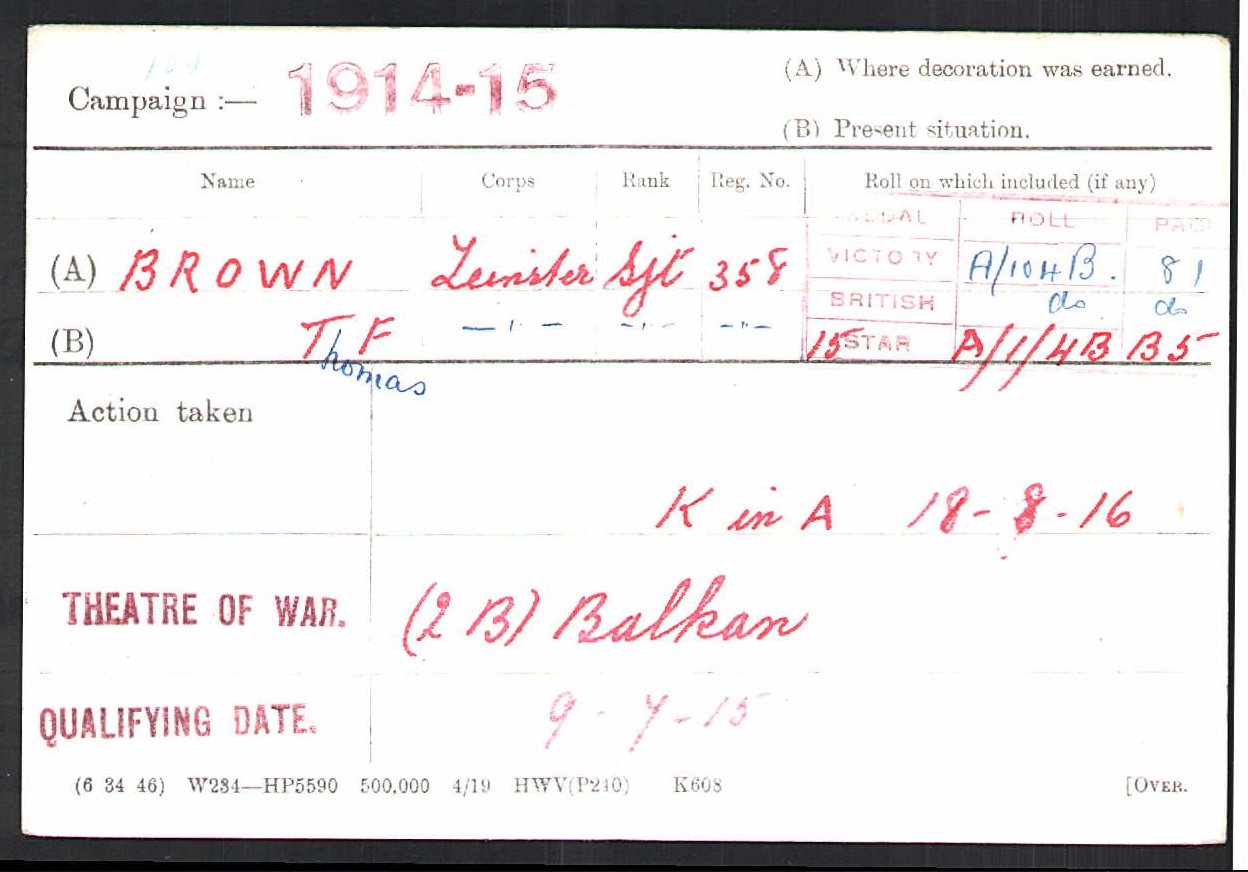 Campaign :— 1914-15 (A) Where decoration was earned.
(B) Present situation.
Name Corps Rank Reg. No. Roll on which included (if any)
MEDAL ROLL PAGE
(A) BROWN Leinster Sjt 358 VICTORY A/104B. 81
BRITISH do do
(B) T F —"— —"— —"— 15 STAR A/1/4B B5
Thomas
Action taken
K in A 18-8-16
THEATRE OF WAR. (2B) Balkan
QUALIFYING DATE. 9-7-15
(6 34 46) W234—HP5590 500,000 4/19 HWV(P240) K608 [OVER.